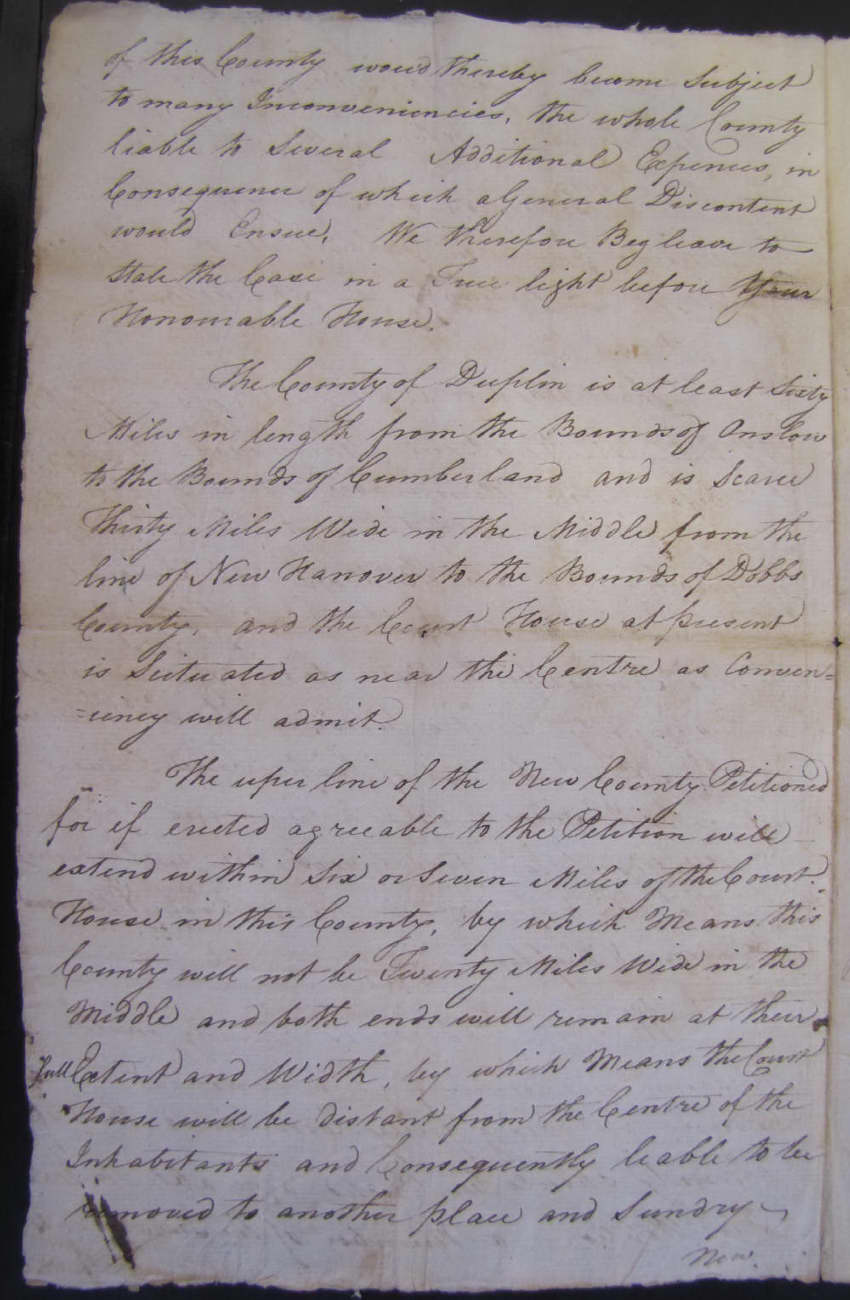 of this County woud thereby become Subject
to many Inconveniencies, the whole County
liable to Several Additional Expences, in
Consequence of which a General Discontent
would Ensue, We therefore Beg leave to
state the Case in a True light before Your
Honourable House.
The County of Duplin is at least Sixty
Miles in length from the Bounds of Onslow
to the Bounds of Cumberland and is Scarce
Thirty Miles Wide in the Middle from the
line of New Hanover to the Bounds of Dobbs
County, and the Court House at present
is Scituated as near the Centre as Conven=
=iency will admit.
The uper line of the New County Petitioned
for if erected agreeable to the Petition will
extend within Six or Seven Miles of the Court
House in this County, by which Means this
County will not be Twenty Miles Wide in the
Middle and both ends will remain at their
full Extent and Width, by which Means the Court
House will be distant from the Centre of the
Inhabitants and Consequently liable to be
removed to another place and Sundry
New